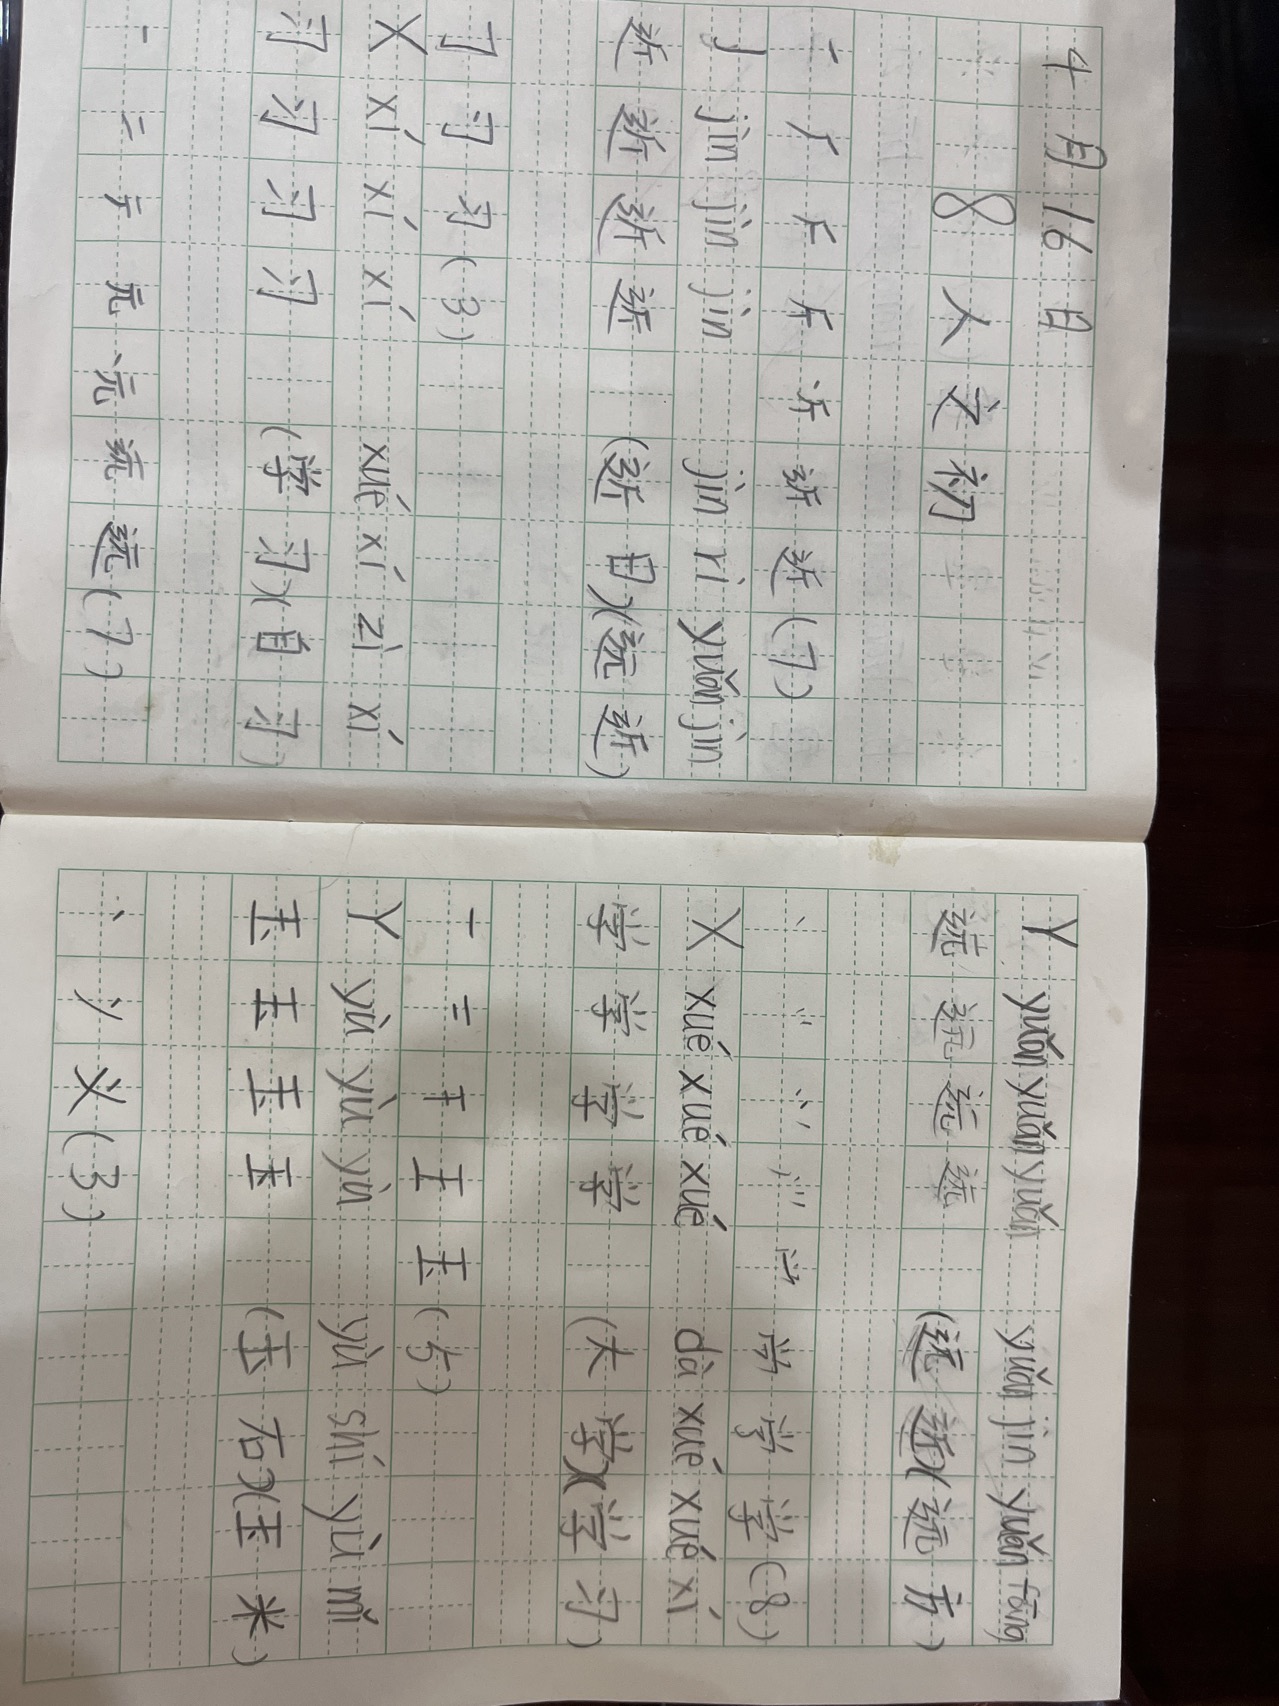 4月16日
8人之初
丿 厂 斤 斤 近(7)
J jìn jìn jìn jìn rì yuǎn jìn
近 近 近 近 (近日)(远近)
㇆ 习 习(3)
X xí xí xí xué xí zì xí
习 习 习 习 (学习)(自习)
一 二 元 远(7)
Y yuǎn yuǎn yuǎn yuǎn jìn yuǎn fāng
远 远 远 远 (远近)(远方)
丶 学(8)
X xué xué xué dà xué xué xí
学 学 学 学 (大学)(学习)
一 二 干 王 玉(5)
Y yù yù yù yù shí yù mǐ
玉 玉 玉 玉 (玉石)(玉米)
丶 义(3)